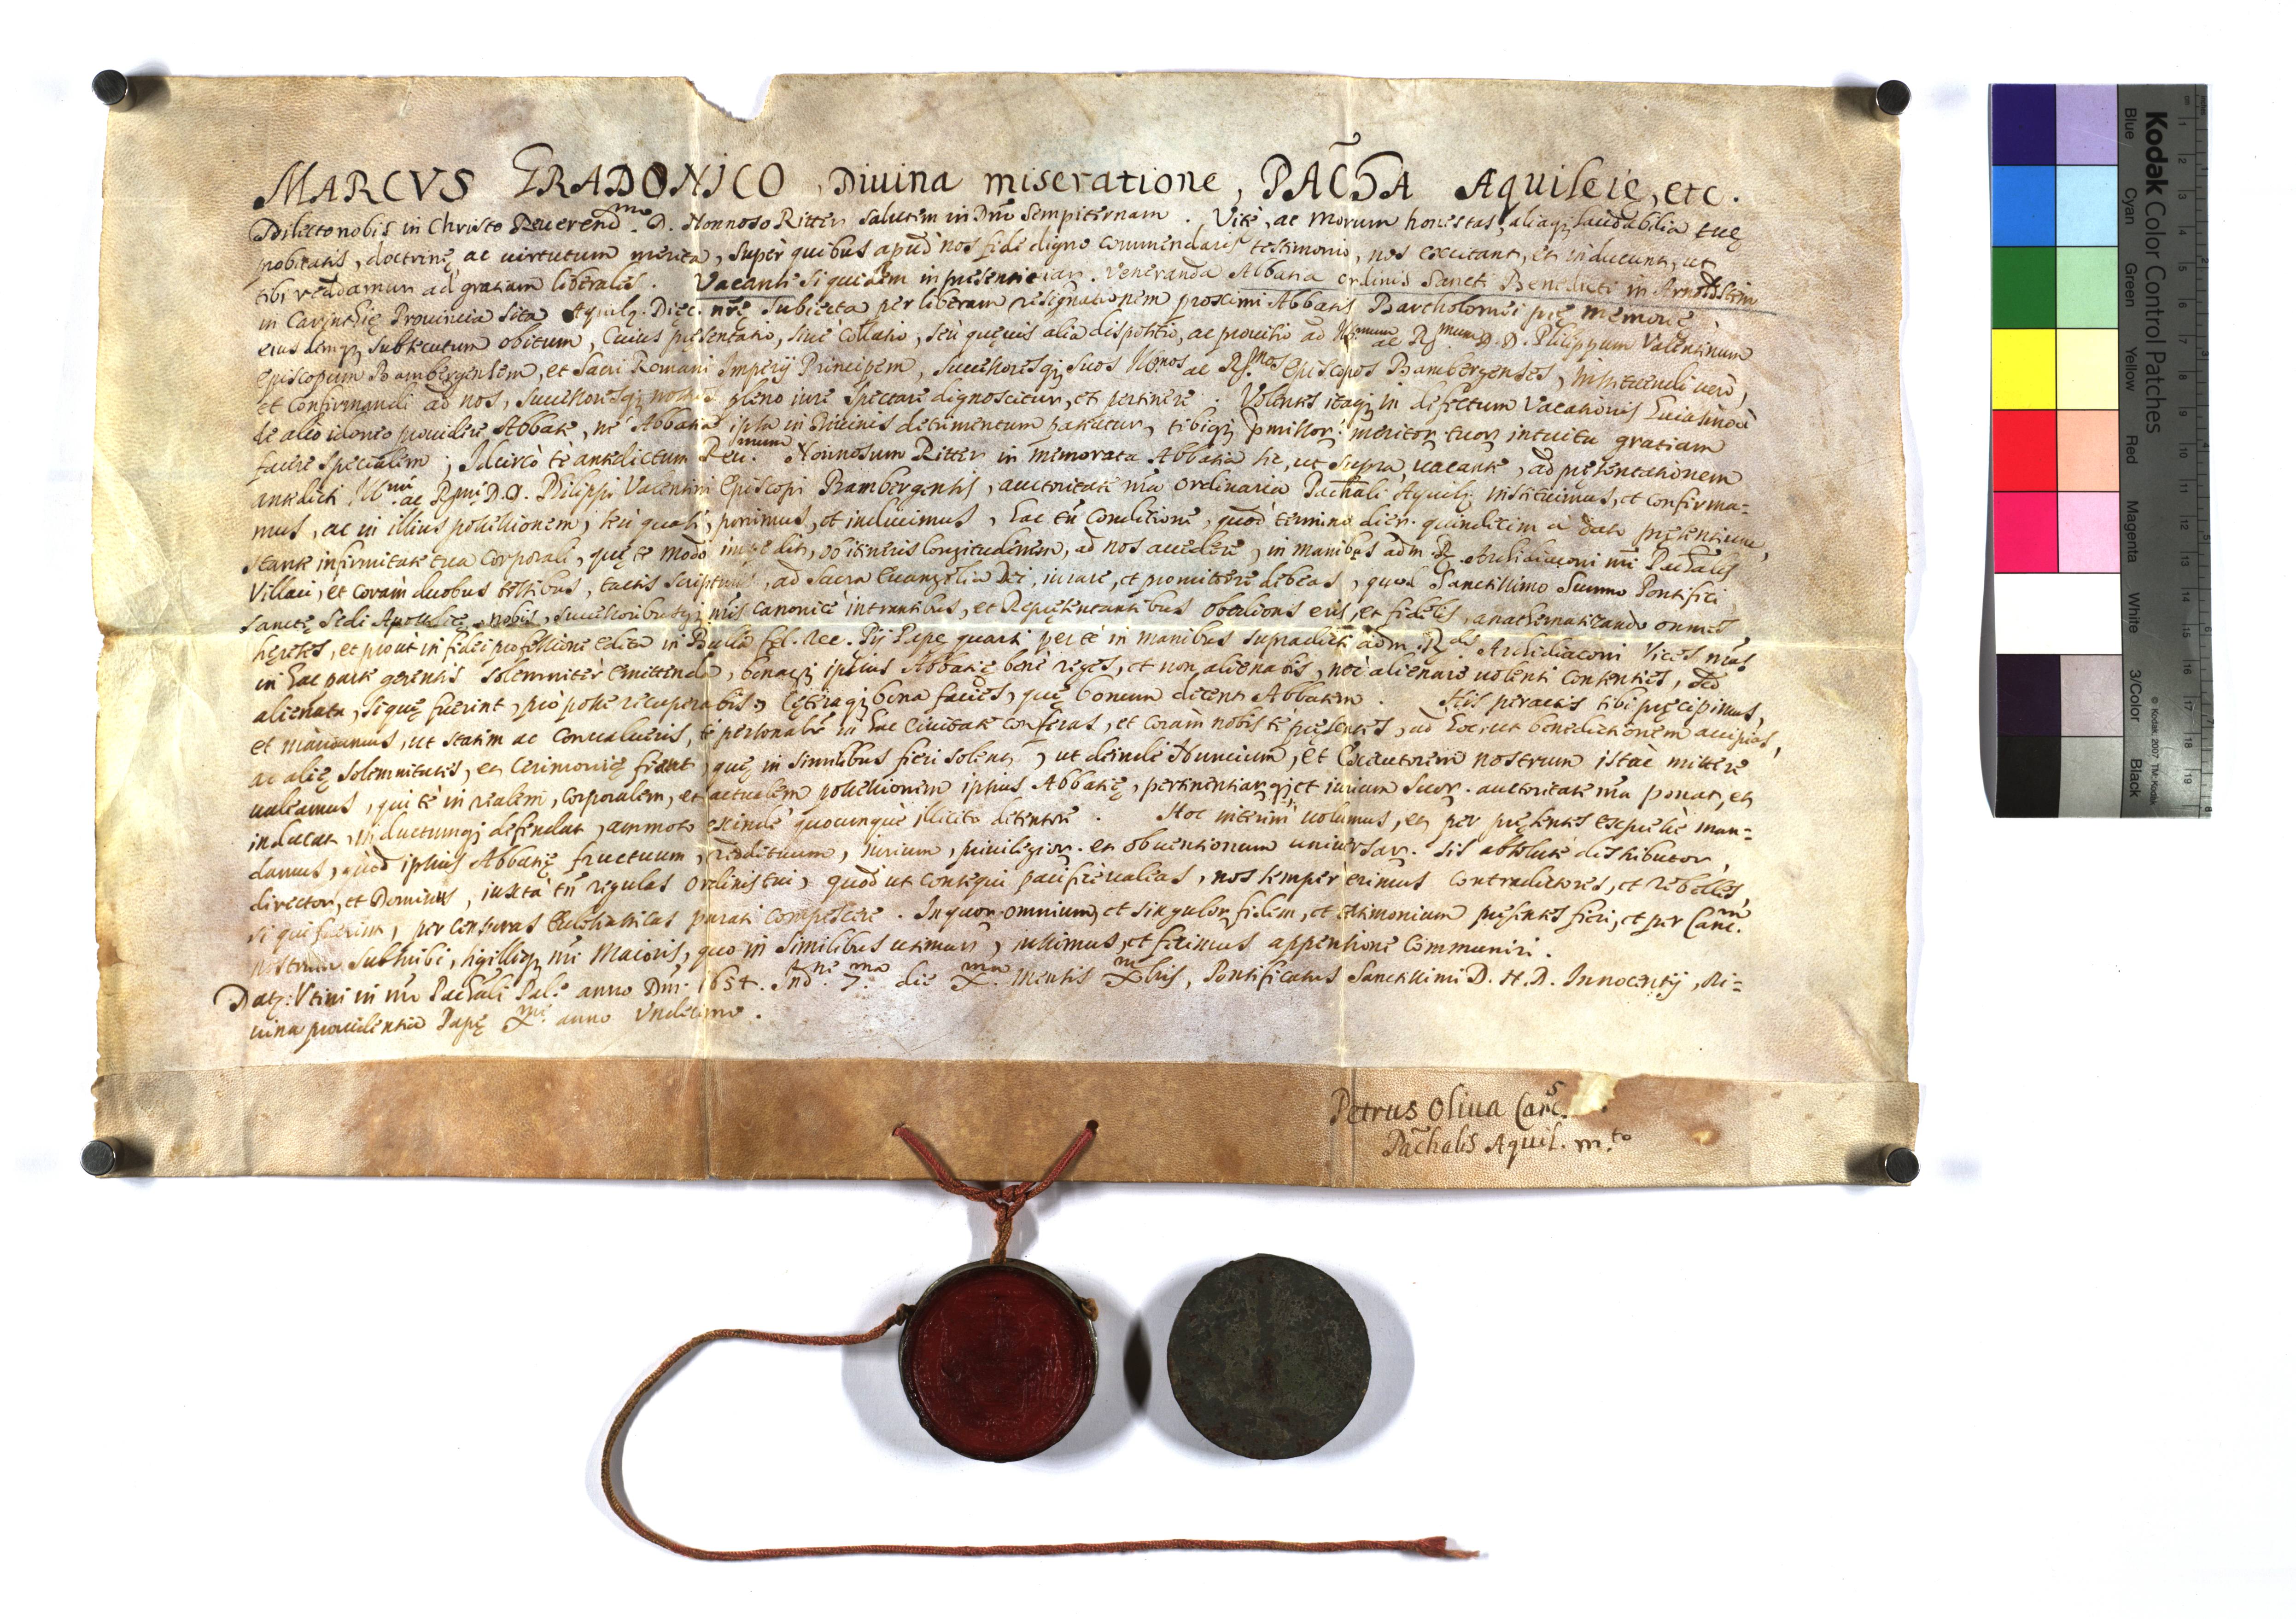 MARCVS GRADONICO, Diuina miseratione, PACHA Aquileie, etc.
Dilecto nobis in Christo Reuerend.mo D. Nonnoso Ritter salutem in Dno sempiternam. Vite, ac morum honestas, aliaq; laudabilia tuę
probitatis, doctrinę, ac uirtutum merita, super quibus apud nos fide digno commendaris testimonio, nos excitant, et inducunt, ut
tibi reddamur ad gratiam liberales. Vacante siquidem in presentiar. Veneranda Abbatia ordinis Sancti Benedicti in Arnoldstein
in Carinthię Prouincia sita Aquilę. Dięc. nrę subiecta per liberam resignationem proximi Abbatis Bartholomei pię memorię
eiusdemq; subsecutum obitum, Cuius pręsentatio, siue Collatio, seu queuis alia dispositio, ac prouisio ad Illmum ac Rmum D. D. Philippum Valentinum
Episcopum Bambergensem, et Sacri Romani Imperij Principem, successoresq; suos Illmos ac Rmos Episcopos Bambergenses, Instituendi uerò,
et Confirmandi ad nos, successoresq; nostros pleno iure spectare dignoscitur, et pertinere. Volentes itaq; in defectum Vacationis huiusmodi
de alio idoneo prouidere Abbate, ne Abbatia ipsa in Diuinis detrimentum patiatur, tibiq; pmissor. meritor. tuor. intuitu gratiam
facere specialem; Idcircò te antedictum Reu.mum Nonnosum Ritter in memorata Abbatia sic, ut supra, uacante, ad pręsentationem
antedicti Illmi ac Rmi D. D. Philippi Valentini Episcopi Bambergensis, auctoritate nra ordinaria Pachali Aquilę. instituimus, et confirma=
mus, ac in illius possessionem, seu quasi, ponimus, et inducimus, hac tn conditione, quod termino dier. quindecim a dato pręsentium,
stante infirmitate tua corporali, quę te modo impedit, ob itineris longitudinem, ad nos accedere, in manibus adm. R. Archidiaconi nri Pachalis
Villaci, et coram duobus testibus, tactis scripturis, ad Sacra Euangelia Dei, iurare, et promittere debeas, quod Sanctissimo Summo Pontifici
sanctę Sedi Apostolicę, nobis, successoribusq; nris canonicè intrantibus, et Representantibus obediens eris, et fidelis, anathematizando omnes
hęreses, et prout in fidei professione edita in Bulla fel. rec. Pij Papę quarti per te in manibus supradicti adm. R.di Archidiaconi Vices nras
in hac parte gerentis solemniter emittenda, bonaq; ipsius Abbatię bene reges, et non alienabis, nec alienare uolenti consenties, sed
alienata, si quę fuerint, pro posse recuperabis, cęteraq; bona facies, quę bonum decent Abbatem. His peractis tibi pręcipimus,
et mandamus, ut statim ac conualueris, te personalr in hac Ciuitate conferas, et coram nobis te pręsentes, ad hoc, ut benedictionem accipias,
ac alię solemnitates, et cerimonię fiant, quę in similibus fieri solent, ut deinde Nuncium, et Executorem nostrum istac mittere
ualeamus, qui te in realem, corporalem, et actualem possessionem ipsius Abbatię, pertinentiarq; et iurium suor. auctoritate nra ponat, et
inducat, inductumq; defendat, ammoto exinde quocunque illicito detentore. Hoc interim uolumus, et per pręsentes expresse man=
damus, quod ipsius Abbatię fructuum, reddituum, iurium, priuilegior. et obuentionum uniuersar. sis absolute distributor,
director, et Dominus, iuxta tn regulas ordinis tui, quod ut consequi pacificè ualeas, nos semper erimus contradictores, et rebelles,
si qui fuerint, per censuras Ecclesiasticas parati compescere. In quor. omnium, et singulor. fidem, et testimonium pręsentes fieri, et per Canc.m
nostrum subscribi, sigilliq; nri Maioris, quo in similibus utimur, iussimus, et fecimus appensione communiri.
Datę: Vtini in nro Pachali Pal.o anno Dni 1654. Ind.ne 7.ma die X.ma mensis Xbris, Pontificatus Sanctissimi D. N. D. Innocentij, Di=
uina prouidentia Papę X.mi anno Vndecimo.
Petrus Oliua Canc.s
Pachalis Aquil. m.to
Kodak Color Control Patches
Blue Cyan Green Yellow Red Magenta White 3/Color Black
© Kodak, 2007 TM: Kodak